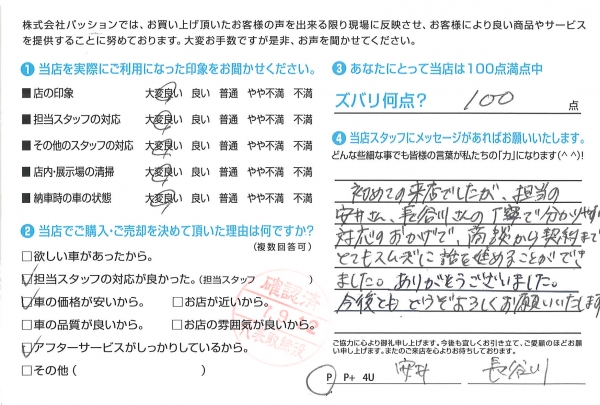 株式会社パッションでは、お買い上げ頂いたお客様の声を出来る限り現場に反映させ、お客様により良い商品やサービス
を提供することに努めております。大変お手数ですが是非、お声を聞かせてください。
❶当店を実際にご利用になった印象をお聞かせください。
■店の印象 大変良い 良い 普通 やや不満 不満
■担当スタッフの対応 大変良い 良い 普通 やや不満 不満
■その他のスタッフの対応 大変良い 良い 普通 やや不満 不満
■店内・展示場の清掃 大変良い 良い 普通 やや不満 不満
■納車時の車の状態 大変良い 良い 普通 やや不満 不満
❷当店でご購入・ご売却を決めて頂いた理由は何ですか?
(複数回答可)
□欲しい車があったから。
☑担当スタッフの対応が良かった。(担当スタッフ )
☑車の価格が安いから。 □お店が近いから。
□車の品質が良いから。 □お店の雰囲気が良いから。
☑アフターサービスがしっかりしているから。
□その他( )
確認済
❸あなたにとって当店は100点満点中
ズバリ何点? 100 点
❹当店スタッフにメッセージがあればお願いいたします。
どんな些細な事でも皆様の言葉が私たちの「力」になります(^^)!
初めての来店でしたが、担当の
安井さん、長谷川さんの丁寧で分かりやすい
対応のおかげで、商談から契約まで
とてもスムーズに話を進めることができ
ました。ありがとうございました。
今後とも どうぞよろしくお願いいたします
ご協力に心より御礼申し上げます。今後も宜しくお引き立て、ご愛顧のほどお願
い申し上げます。またのご来店を心よりお待ちしております。
P P+ 4U 安井 長谷川